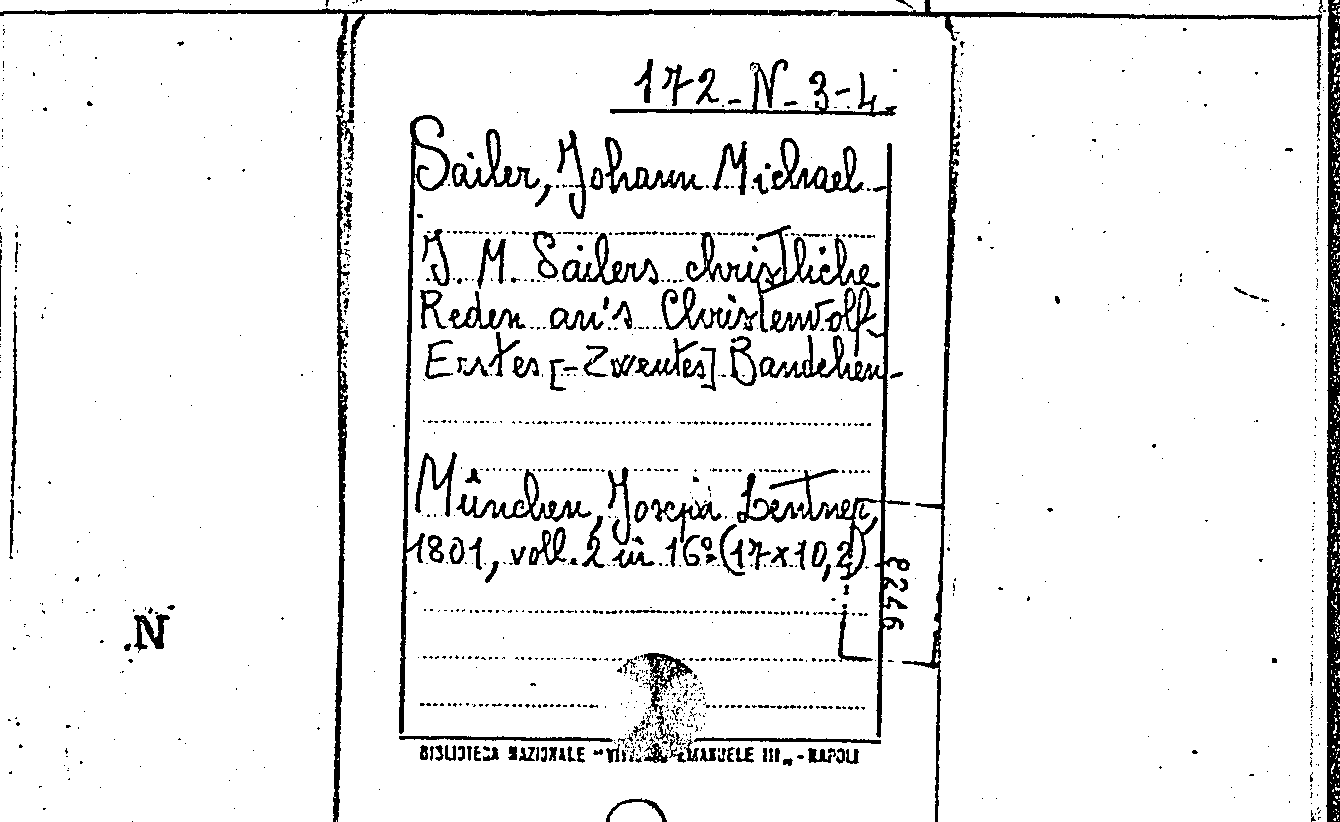 172-N-3-4.
Sailer, Johann Michael-
J. M. Sailers christliche
Reden an's Christenvolk-
Erstes [-Zweutes] Bandchen-
München, Joseph Lentner,
1801, voll. 2 in 16º (17x10,2)
8246
N
BIBLIOTECA NAZIONALE "VITTORIO EMANUELE III" - NAPOLI